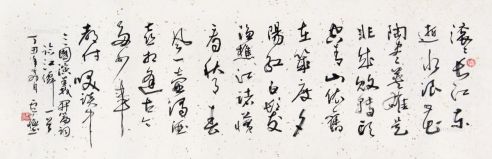 滚滚长江东
逝水浪花
淘尽英雄是
非成败转头
空青山依旧
在几度夕
阳红白发
渔樵江渚惯
看秋月春
风一壶浊酒
喜相逢古今
多少事
都付笑谈中
三国演义开篇词
临江仙一首
丁丑年